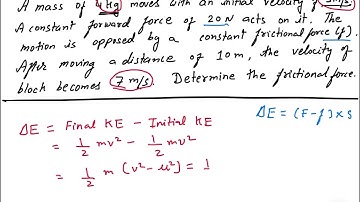 A mass of 4kg moves with an initial velocity of 3m/s
A constant forward force of 20N acts on it. The
motion is opposed by a constant frictional force (f).
After moving a distance of 10m, the velocity of
block becomes 7 m/s. Determine the frictional force.
ΔE = Final KE - Initial KE
= 1/2 mv² - 1/2 mv²
= 1/2 m (v² - u²) = 1
ΔE = (F-f) × s